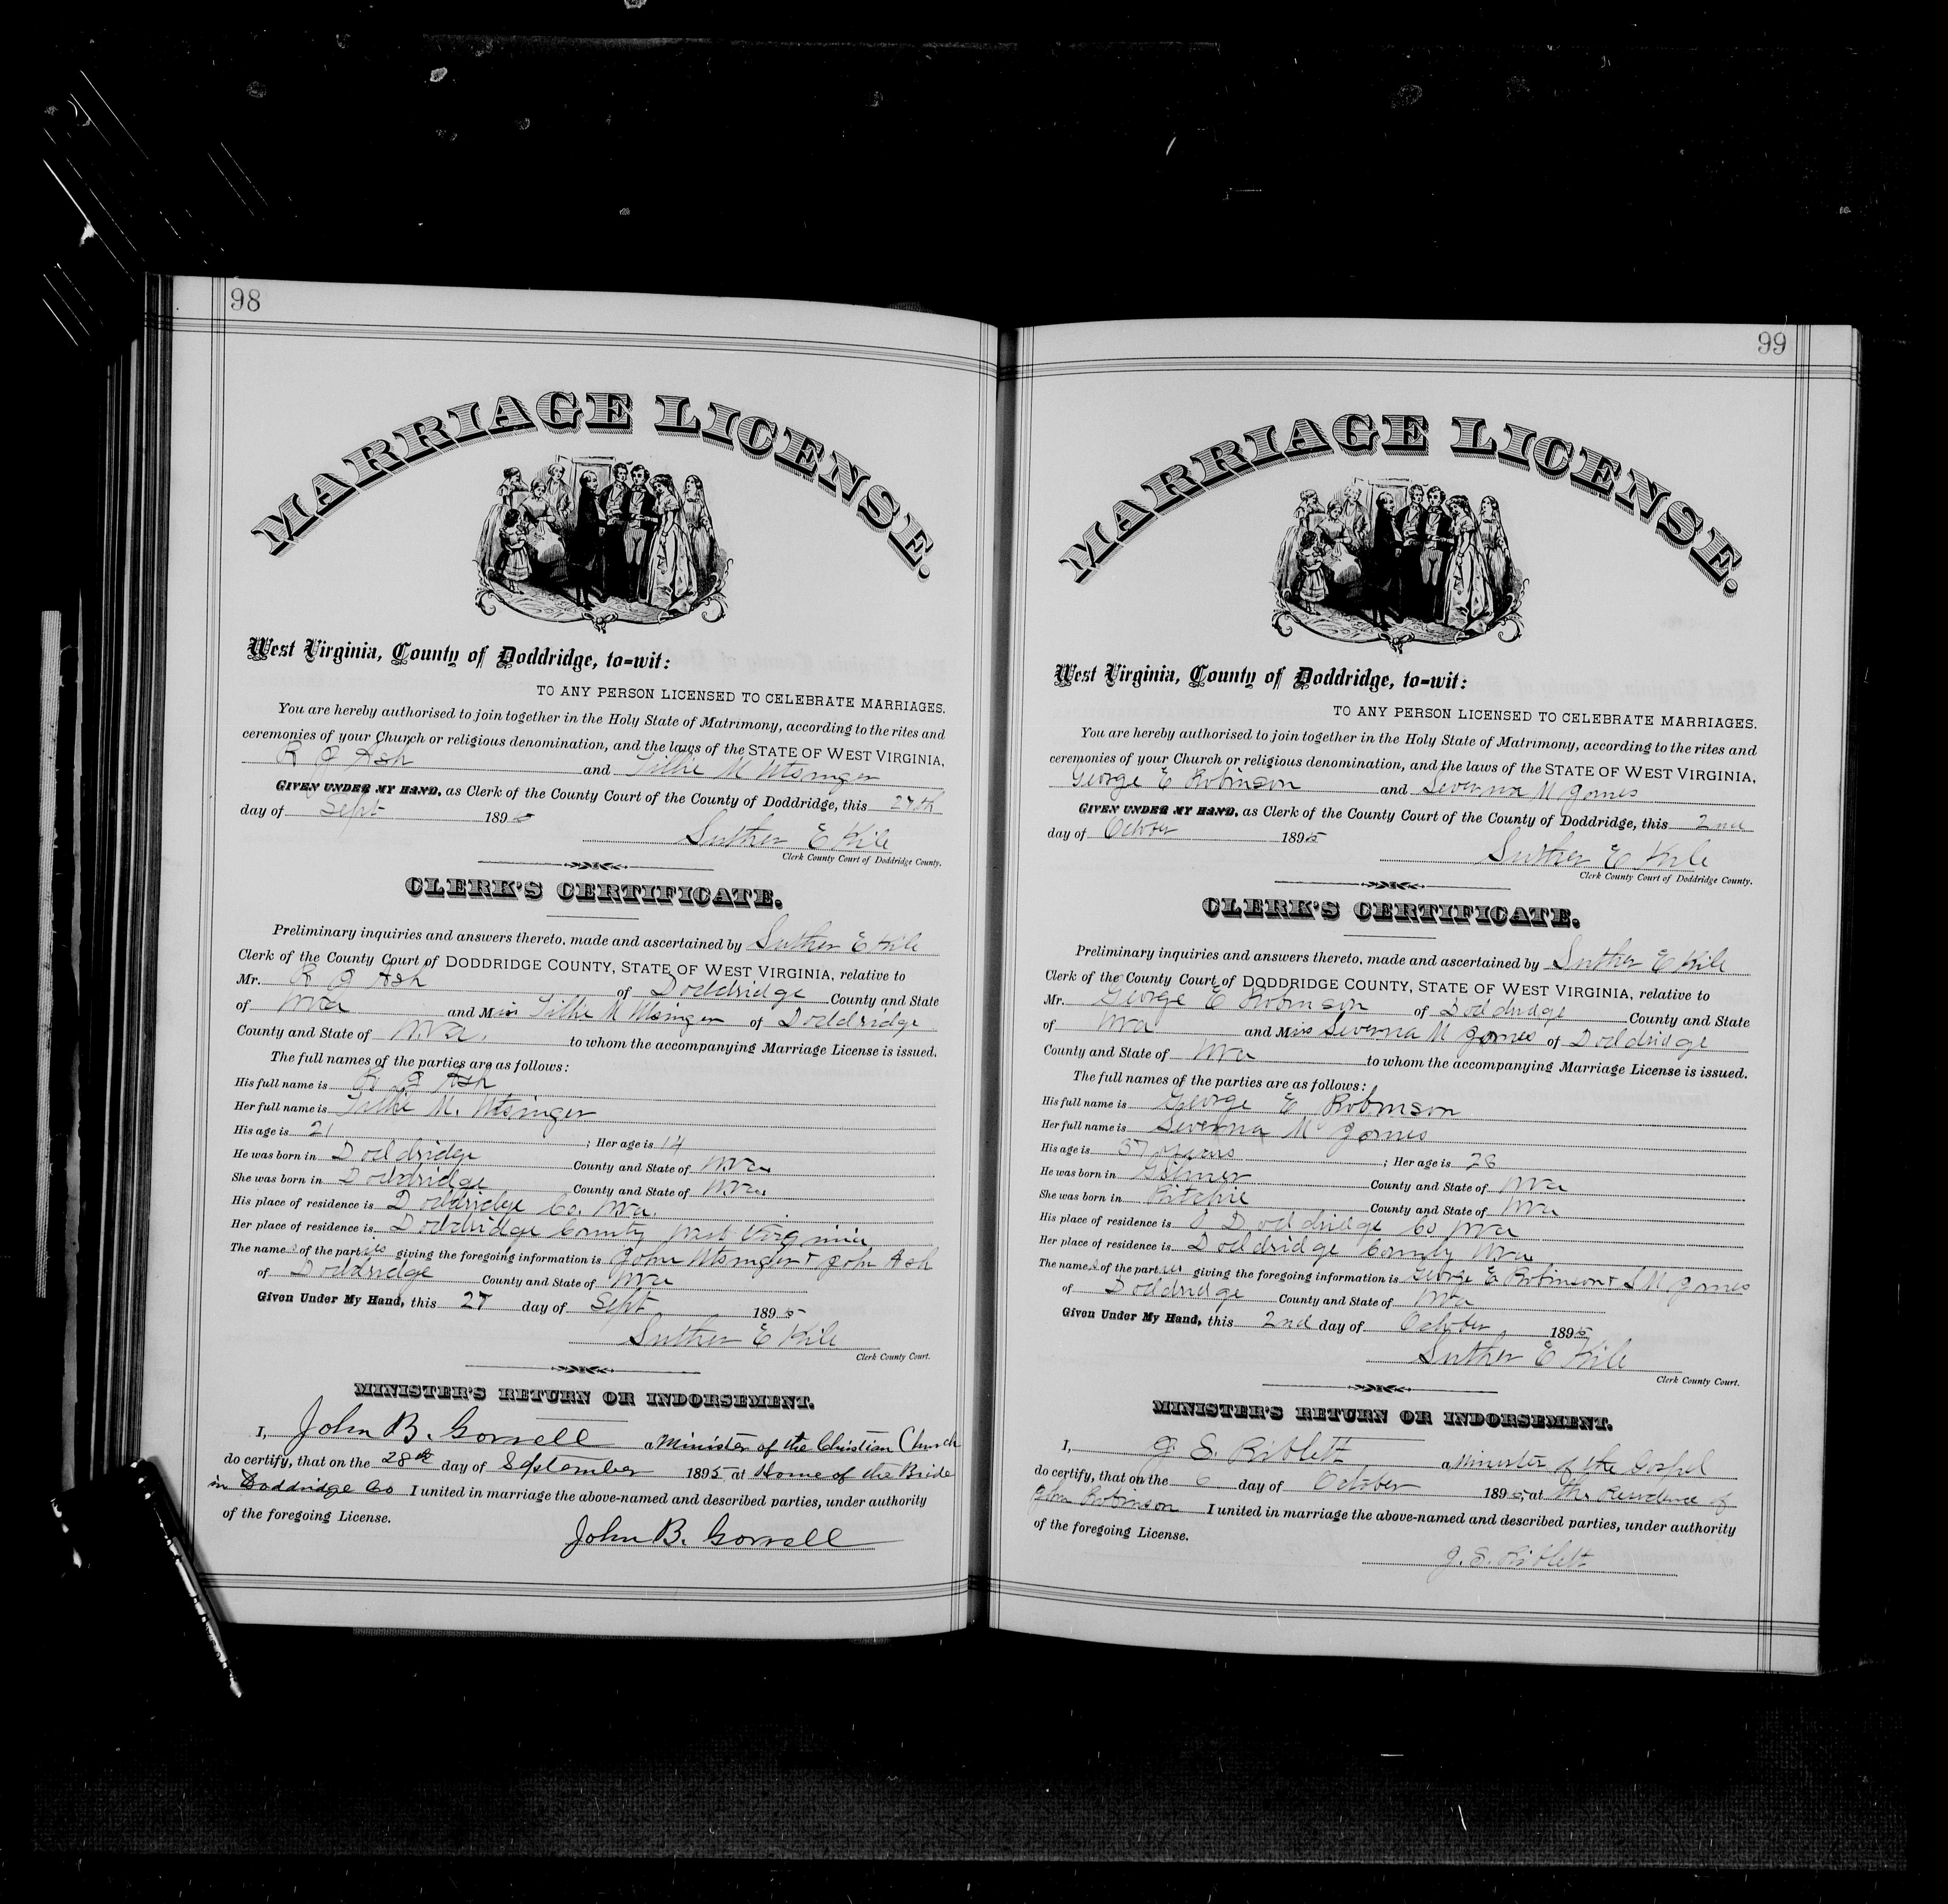 98
MARRIAGE LICENSE.
West Virginia, County of Doddridge, to=wit:
TO ANY PERSON LICENSED TO CELEBRATE MARRIAGES.
You are hereby authorised to join together in the Holy State of Matrimony, according to the rites and
ceremonies of your Church or religious denomination, and the laws of the STATE OF WEST VIRGINIA,
Ash and Tillie M Utsinger
GIVEN UNDER MY HAND, as Clerk of the County Court of the County of Doddridge, this 27th
day of Sept 1895
Luther E Kile
Clerk County Court of Doddridge County.
CLERK'S CERTIFICATE.
Preliminary inquiries and answers thereto, made and ascertained by Luther E Kile
Clerk of the County Court of DODDRIDGE COUNTY, STATE OF WEST VIRGINIA, relative to
Mr. Ash of Doddridge County and State
of WVa and Miss Tillie M Utsinger of Doddridge
County and State of WVa. to whom the accompanying Marriage License is issued.
The full names of the parties are as follows:
His full name is Ash
Her full name is Tillie M. Utsinger
His age is 21 ; Her age is 14
He was born in Doddridge County and State of WVa
She was born in Doddridge County and State of WVa
His place of residence is Doddridge Co. WVa.
Her place of residence is Doddridge County West Virginia
The names of the parties giving the foregoing information is John Utsinger & John Ash
of Doddridge County and State of WVa
Given Under My Hand, this 27 day of Sept 1895
Luther E Kile
Clerk County Court.
MINISTER'S RETURN OR INDORSEMENT.
I, John B. Gorrell a Minister of the Christian Church
do certify, that on the 28th day of September 1895 at Home of the Bride
in Doddridge Co I united in marriage the above-named and described parties, under authority
of the foregoing License.
John B. Gorrell
99
MARRIAGE LICENSE.
West Virginia, County of Doddridge, to=wit:
TO ANY PERSON LICENSED TO CELEBRATE MARRIAGES.
You are hereby authorised to join together in the Holy State of Matrimony, according to the rites and
ceremonies of your Church or religious denomination, and the laws of the STATE OF WEST VIRGINIA,
George E Robinson and Severna M Jones
GIVEN UNDER MY HAND, as Clerk of the County Court of the County of Doddridge, this 2nd
day of October 1895
Luther E Kile
Clerk County Court of Doddridge County.
CLERK'S CERTIFICATE.
Preliminary inquiries and answers thereto, made and ascertained by Luther E Kile
Clerk of the County Court of DODDRIDGE COUNTY, STATE OF WEST VIRGINIA, relative to
Mr. George E Robinson of Doddridge County and State
of WVa and Miss Severna M Jones of Doddridge
County and State of WVa to whom the accompanying Marriage License is issued.
The full names of the parties are as follows:
His full name is George E Robinson
Her full name is Severna M Jones
His age is 37 years ; Her age is 28
He was born in Gilmer County and State of WVa
She was born in Ritchie County and State of WVa
His place of residence is Doddridge Co WVa
Her place of residence is Doddridge County WVa
The names of the parties giving the foregoing information is George E Robinson & S M Jones
of Doddridge County and State of WVa
Given Under My Hand, this 2nd day of October 1895
Luther E Kile
Clerk County Court.
MINISTER'S RETURN OR INDORSEMENT.
I, J. S. Riblett a Minister of the Gospel
do certify, that on the 6 day of October 1895, at the Residence of
John Robinson I united in marriage the above-named and described parties, under authority
of the foregoing License.
J. S. Riblett